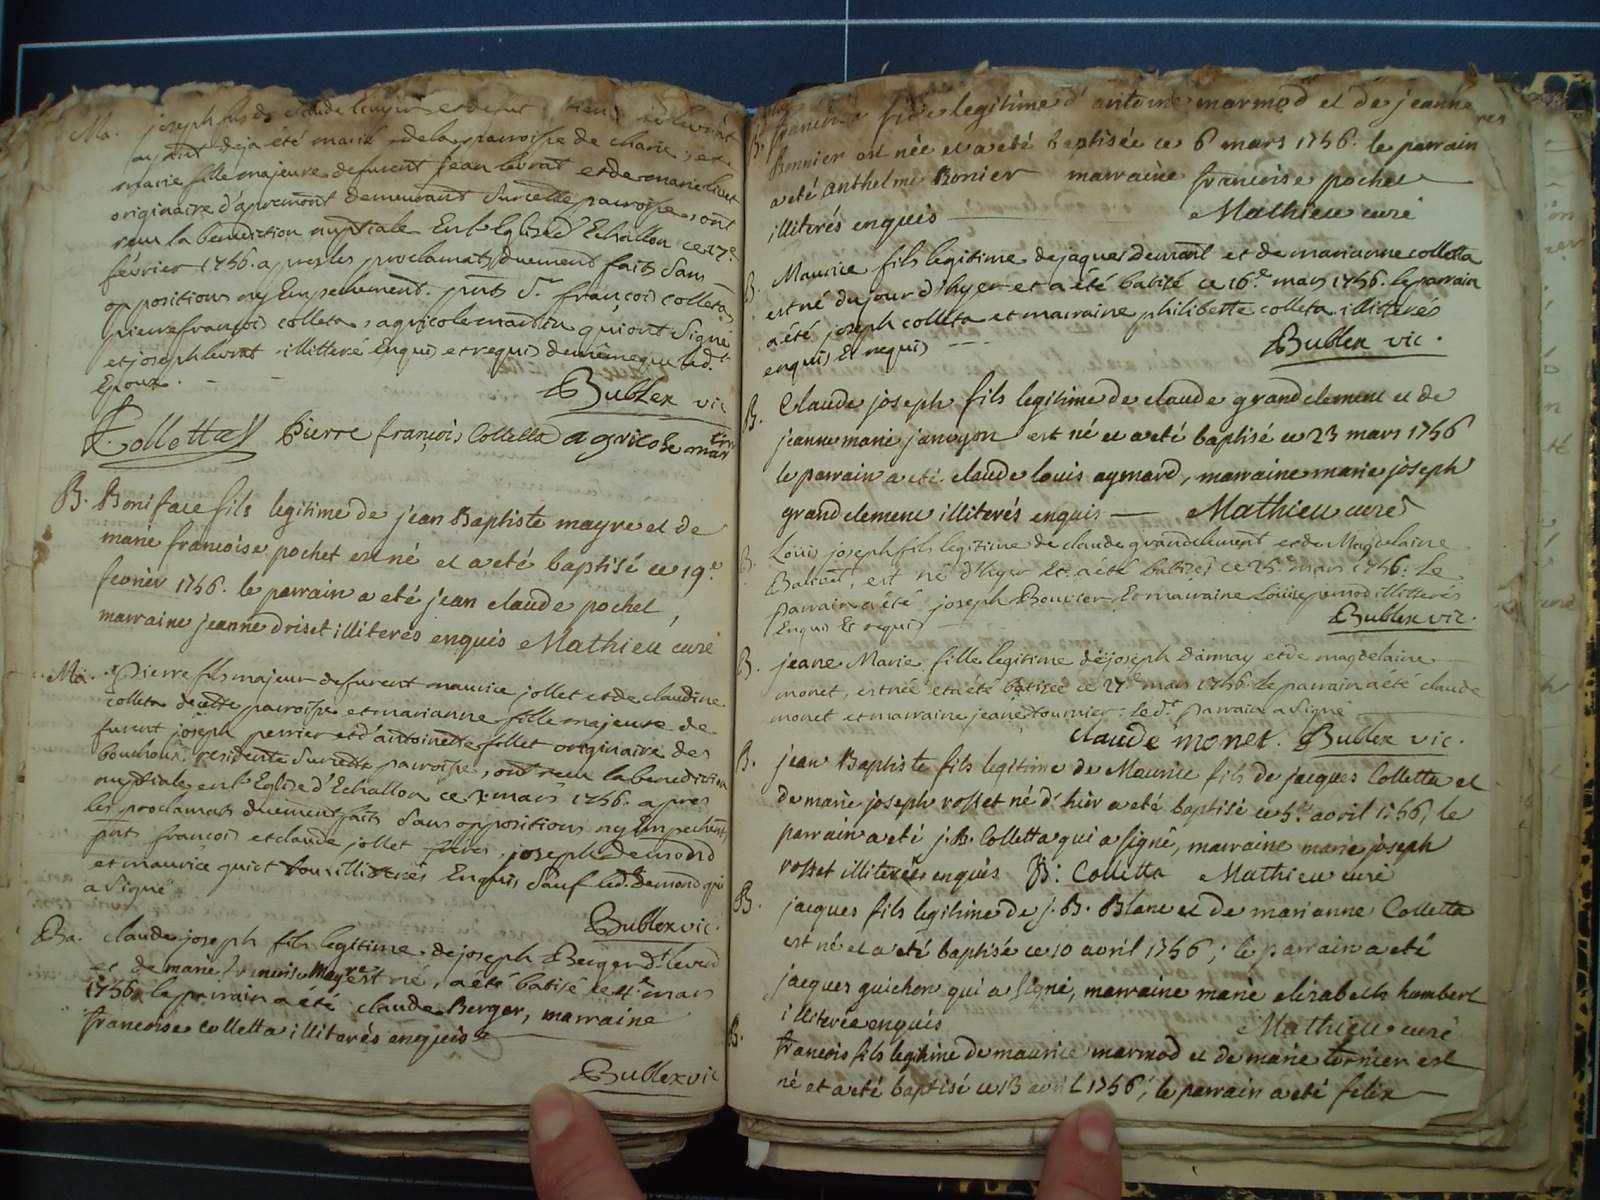 Ma. joseph fils de claude
ayant deja été marié de la parroisse de charix, et
marie fille majeure de furent jean livrat et de marie
originaire d'apremont demeurant sur cette parroisse, ont
reçu la benediction nuptiale En l'Eglise d'Echallon ce 17e
février 1756. apres les proclamats duement faits sans
oppositions ny Empechement. pnts Sr françois colleta
pierre françois colleta, agricole martin qui ont signé
et joseph livrat illitteré Enquis et requis de même que led.t
Epoux.
Bublex vic
Colletta Pierre françois Colletta agricole martin
B. Boniface fils legitime de jean Baptiste mayre et de
marie francoise pochet est né et a eté baptisé ce 19e
fevrier 1756. le parrain a eté jean claude pochet,
marraine jeanne driset illiterés enquis Mathieu curé
Ma. Pierre fils majeur de furent maurice jollet et de claudine
colleta de cette parroisse et marianne fille majeure de
furent joseph perrier et d'antoinette follet originaire des
bouchoux residente sur cette parroisse, ont reçu la benediction
nuptiale en l'Eglise d'Echallon ce x mars 1756. apres
les proclamats duement faits sans oppositions ny Empechent,
pnts françois et claude jollet freres, joseph demond
et maurice quiot tous illitterés Enquis sauf led. Demond qui
a signé
Bublex vic.
Ba. claude joseph fils legitime de joseph Berger dt
et de marie francoise mayre est né, a été batisé le mars
1756. le parrain a été claude Berger, marraine
francoise colletta illiterés enquis
Bublex vic
B. francoise fille legitime d'antoine marmod et de jeanne
Bonnier est née et a eté baptisée ce 6 mars 1756. le parrain
a eté anthelme Bonier marraine francoise pochet
illiterés enquis Mathieu curé
B. Maurice fils legitime de jaques demont et de marianne colletta
est né du jour d'hyer et a été batisé ce 16e mars 1756. le parrain
a été joseph colleta et marraine philiberte colleta illitterés
enquis Et requis Bublex vic.
B. Claude joseph fils legitime de claude grandclement et de
jeanne marie janvyon est né et a eté baptisé ce 23 mars 1756
le parrain a eté claude louis aymard, marraine marie joseph
grandclement illiterés enquis Mathieu curé
B. Louis joseph fils legitime de claude grandclement et de Magdelaine
est né d'hyer Et a été batisé ce 25 mars 1756. Le
parrain a été joseph Bouvier Et marraine Louise illitterés
Enquis Et requis Bublex vic.
B. jeane Marie fille legitime de joseph Darmay et de magdelaine
monet, est née et a été batisée ce 27e mars 1756. le parrain a été claude
monet et marraine jeane tournier: le d.t parrain a signé
claude monet. Bublex vic.
B. jean Baptiste fils legitime de Maurice fils de jacques Colletta et
de marie joseph rosset né d'hier a eté baptisé ce 5e avril 1756, le
parrain a eté j.B. Colletta qui a signé, marraine marie joseph
rosset illiterées enquis B: Colletta Mathieu curé
B. jacques fils legitime de j.B. Blanc et de marianne Colletta
est né et a eté baptisé ce 10 avril 1756; le parrain a eté
jacques guichon qui a signé, marraine marie elizabeth humbert
illiterée enquis Mathieu curé
B. francois fils legitime de maurice marmod et de marie tornier est
né et a eté baptisé ce 13 avril 1756, le parrain a eté felix